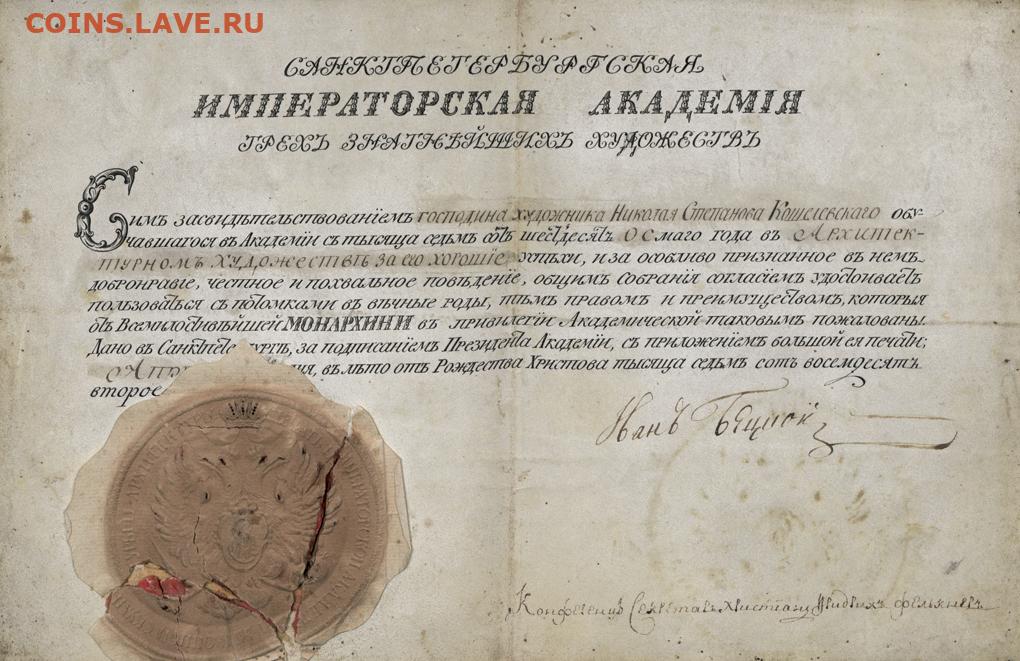 COINS.LAVE.RU
САНКТПЕТЕРБУРГСКАЯ
ИМПЕРАТОРСКАЯ АКАДЕМІЯ
ТРЕХЪ ЗНАТНѢЙШИХЪ ХУДОЖЕСТВЪ
Симъ засвидѣтельствованіемъ господина художника Николая Степанова Кошелевскаго обу-
чавшагося въ Академіи съ тысяща седьмъ сотъ шестьдесятъ осмаго года въ Архитек-
турномъ художествѣ за его хорошіе успѣхи, и за особливо признанное въ немъ
добронравіе, честное и похвальное поведѣніе, общимъ собранія согласіемъ удостоиваетъ
пользоваться съ потомками въ вѣчные роды, тѣмъ правомъ и преимуществомъ, которыя
отъ Всемилостивѣйшей МОНАРХИНИ въ привилегіи Академической таковымъ пожалованы.
Дано въ Санктпетербургѣ, за подписаніемъ Президента Академіи, съ приложеніемъ большой ея печати;
въ лѣто отъ Рождества Христова тысяща седьмъ сотъ восемдесятъ
второе
Иванъ Бецкой
Конференцъ Секретарь Христіанъ Фридрихъ Фелькнеръ